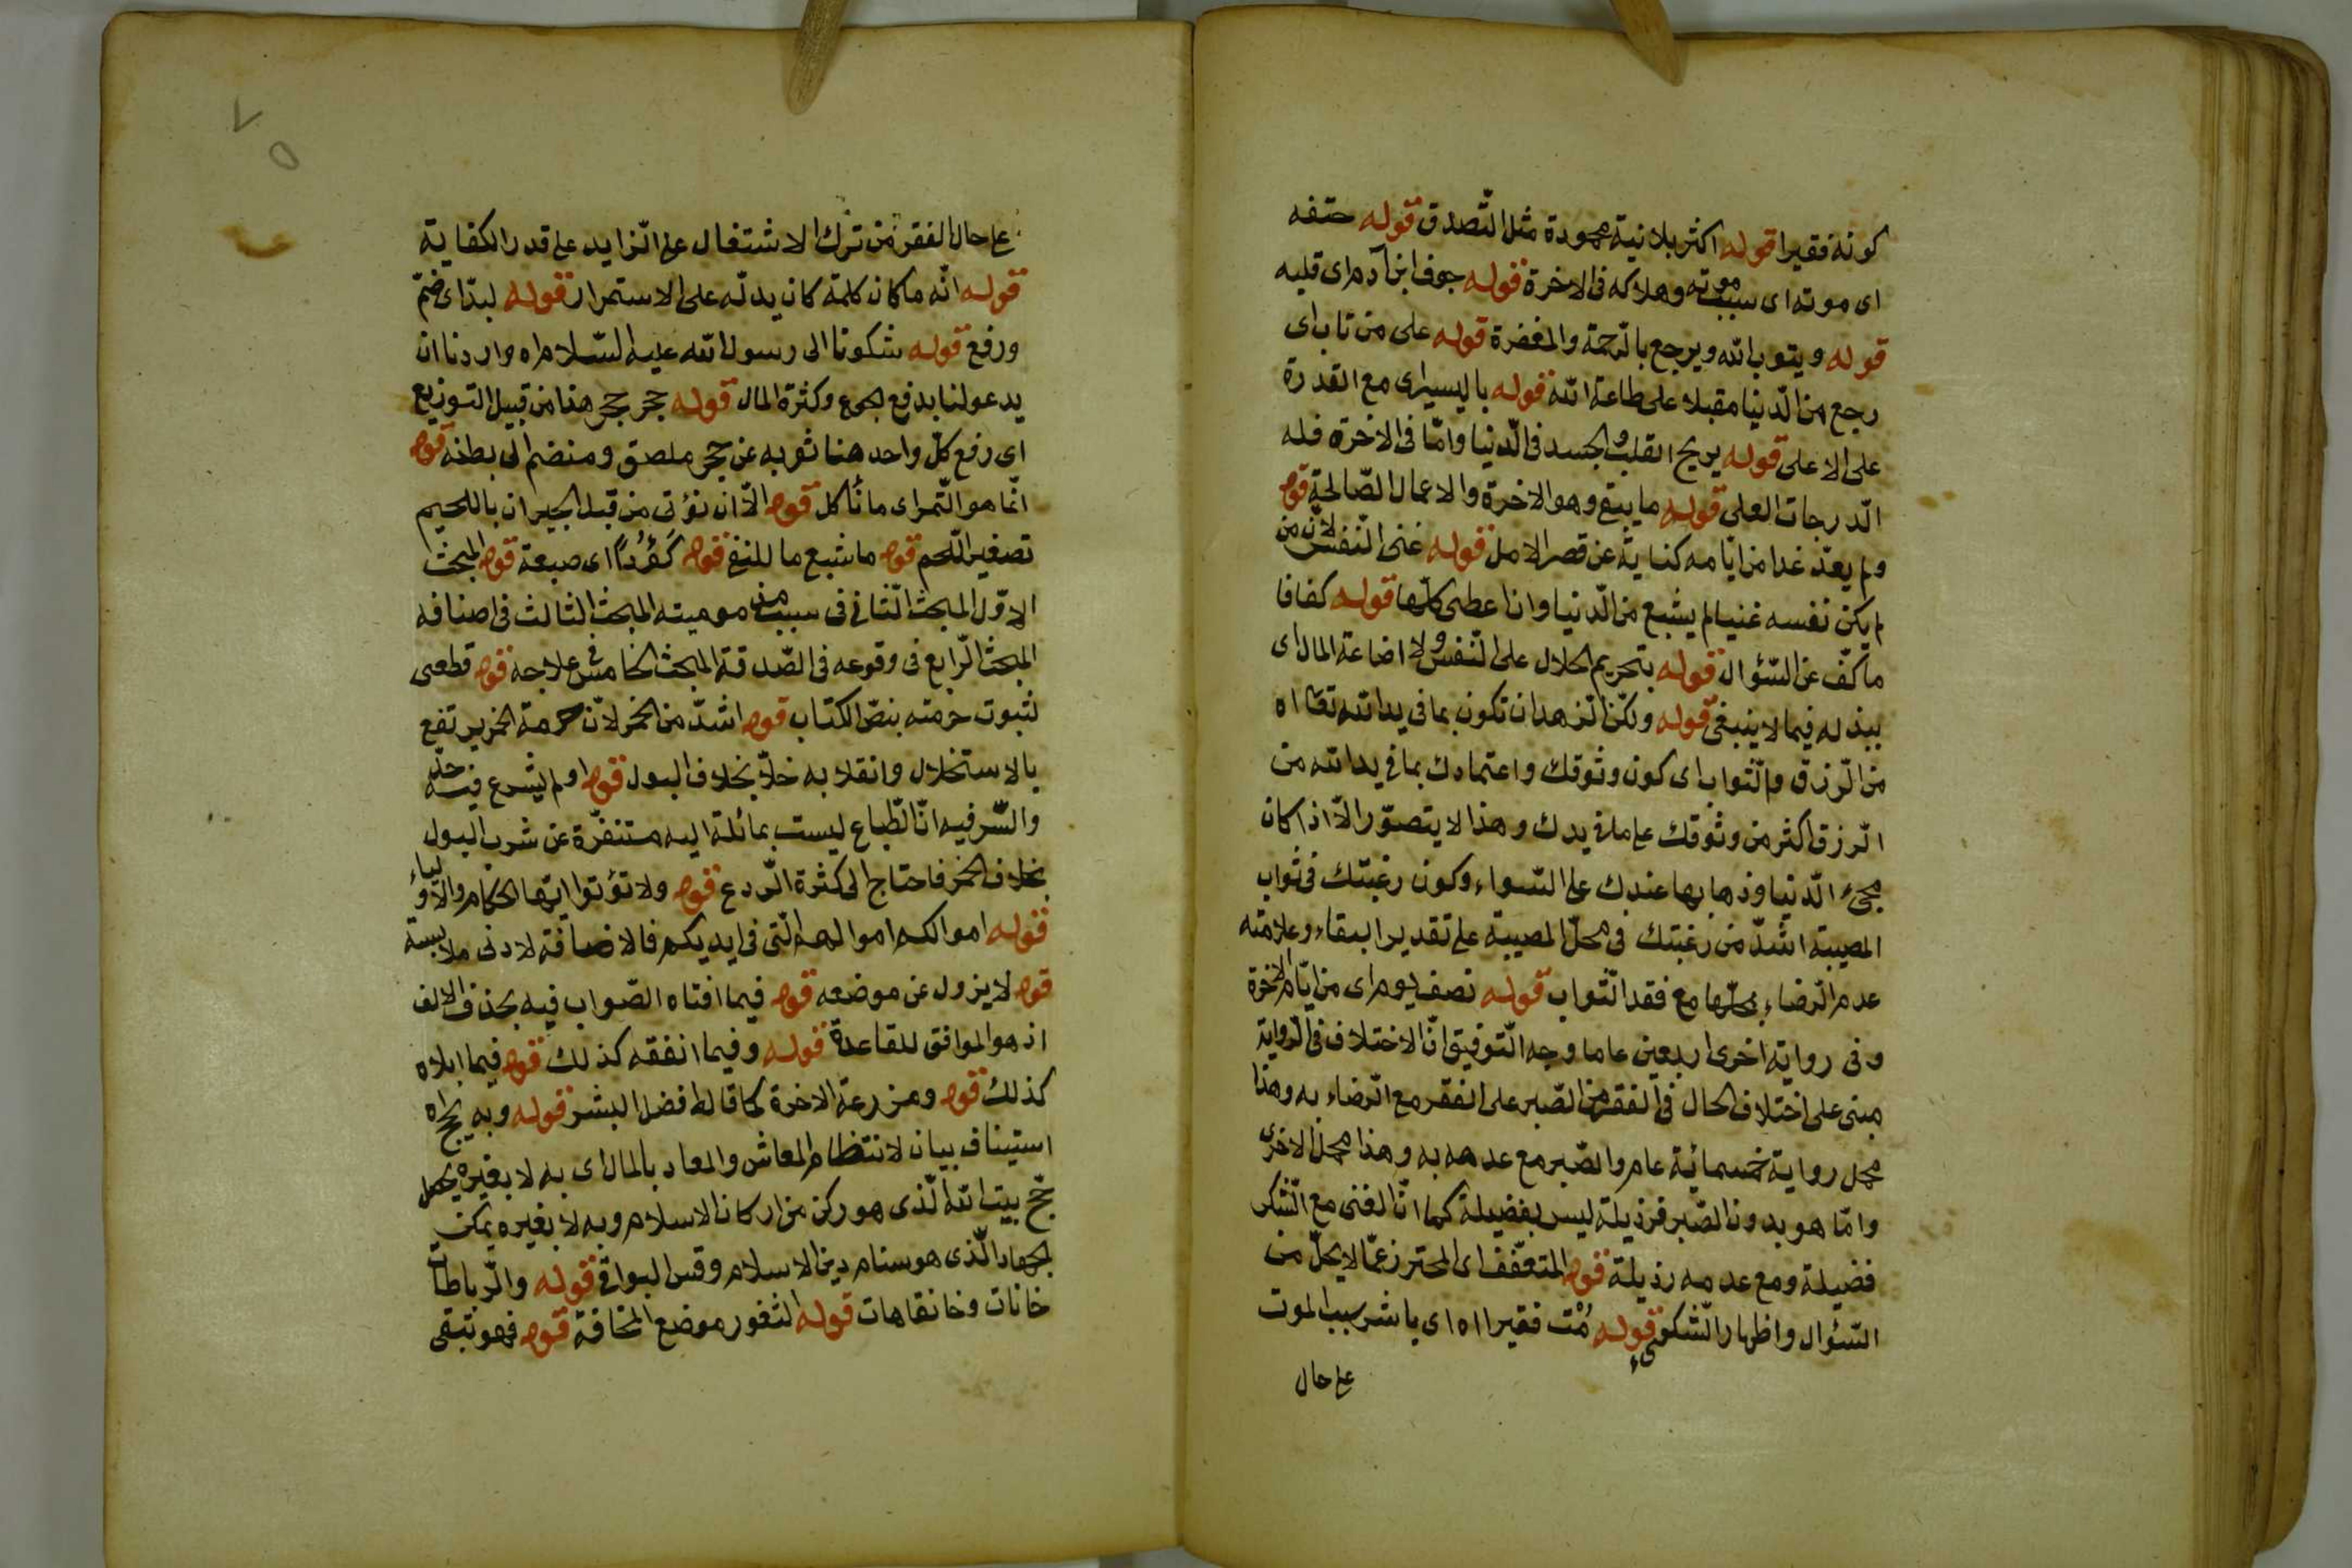 كونه فقيرا قوله اكثر بلا نية محمودة مثل التّصدق قوله حتفه
اى موته اى سبب موته وهلاكه فى الاخرة قوله جوف ابن آدم اى قلبه
قوله ويتوب الله ويرجع بالرّحمة والمغفرة قوله على من تاب اى
رجع من الدّنيا مقبلا على طاعة الله قوله باليسير اى مع القدرة
على الاعلى قوله يريح القلب والجسد فى الدّنيا وامّا فى الاخرة فله
الدّرجات العلى قوله ما يبقى وهو الاخرة والاعمال الصّالحة قوله
ولم يعدّ غدا من ايّامه كناية عن قصر الامل قوله غنى النّفس لانّ من
لم يكن نفسه غنيا لم يشبع من الدّنيا وان اعطى كلّها قوله كفافا
ما كفّ عن السّؤال قوله بتحريم الحلال على النّفس ولا اضاعة المال اى
ببذله فيما لا ينبغى قوله ولكنّ الزهد ان تكون بما فى يد الله تعالى اه
من الرّزق والثواب اى كون وثوقك واعتمادك بما فى يد الله من
الرزق اكثر من وثوقك على ما فى يدك وهذا لا يتصوّر الاّ اذا كان
مجئ الدّنيا وذهابها عندك على السّواء وكون رغبتك فى ثواب
المصيبة اشدّ من رغبتك فى محلّ المصيبة على تقدير البقاء وعلامته
عدم الرّضاء بمحلّها مع فقد الثّواب قوله نصف يوم اى من ايّام الاخرة
وفى رواية اخرى اربعين عاما وجه التّوفيق انّ الاختلاف فى الرّواية
مبنى على اختلاف الحال فى الفقر من الصّبر على الفقر مع الرّضاء به وهذا
محمل رواية خمسمائية عام والصّبر مع عدمه به وهذا محمل الاخرى
وامّا هو بدون الصّبر فرذيلة ليس بفضيلة كما انّ الغنى مع الشّكر
فضيلة ومع عدمه رذيلة قوله المتعفّف اى المحترز عمّا لا يحلّ من
السّئوال واظهار الشّكوى قوله مُتْ فقيرا اه اى باشر سبب الموت
على حال
٧٥
على حال الفقر من ترك الاشتغال على الزايد على قدر الكفاية
قوله انّه ما كان كلمة كان يدلّه على الاستمرار قوله لبدّ اى ضمّ
ورفع قوله شكونا الى رسول الله عليه السّلام اه واردنا ان
يدعو لنا بدفع الجوع وكثرة المال قوله حجر حجر هذا من قبيل التوزيع
اى رفع كلّ واحد هنا ثوبه عن حجر ملصق ومنضم الى بطنه قوله
انّما هو التّمر اى ما نأكل قوله الاّ ان نؤتى من قبل الجيران باللحيم
تصغير اللّحم قوله ما شبع ما للنفى قوله اى صبغة قوله المبحث
الاوّل المبحث الثّانى فى سبب مذموميته المبحث الثالث فى اصنافه
المبحث الرّابع فى وقوعه فى الصّدقة المبحث الخامس فى علاجه قوله قطعى
لثبوت حرمته بنصّ الكتاب قوله اشدّ من الخمر لانّ حرمة الخمر يرتفع
بالاستخلال وانقلابه خلاّ بخلاف البول قوله ولم يشرع فيه حدّ
والسّر فيه انّ الطّباع ليست بمائلة اليه مستنفّرة عن شرب البول
بخلاف الخمر فاحتاج الى كثرة الرّدع قوله ولا تؤتوا ايّها الحكّام والاولياء
قوله اموالكم اموالهم الّتى فى ايديكم فالاضافة لادنى ملابسة
قوله لا يزول عن موضعه قوله فيما افناه الصّواب فيه بحذف الالف
اذ هو الموافق للقاعدة قوله وفيما انفقه كذلك قوله فيما ابلاه
كذلك قوله ومزرعة الاخرة كما قال افضل البشر قوله وبه يحج اه
استيناف بيان لانتظام المعاش والمعاد بالمال اى به لا بغيره يحصل
حجّ بيت الله الّذى هو ركن من اركان الاسلام وبه لا بغيره يمكن
الجهاد الّذى هو سنام دين الاسلام وقس البواقى قوله والرّباطات
خانات وخانقاهات قوله الثغور موضع المخافة قوله فهو بتقى